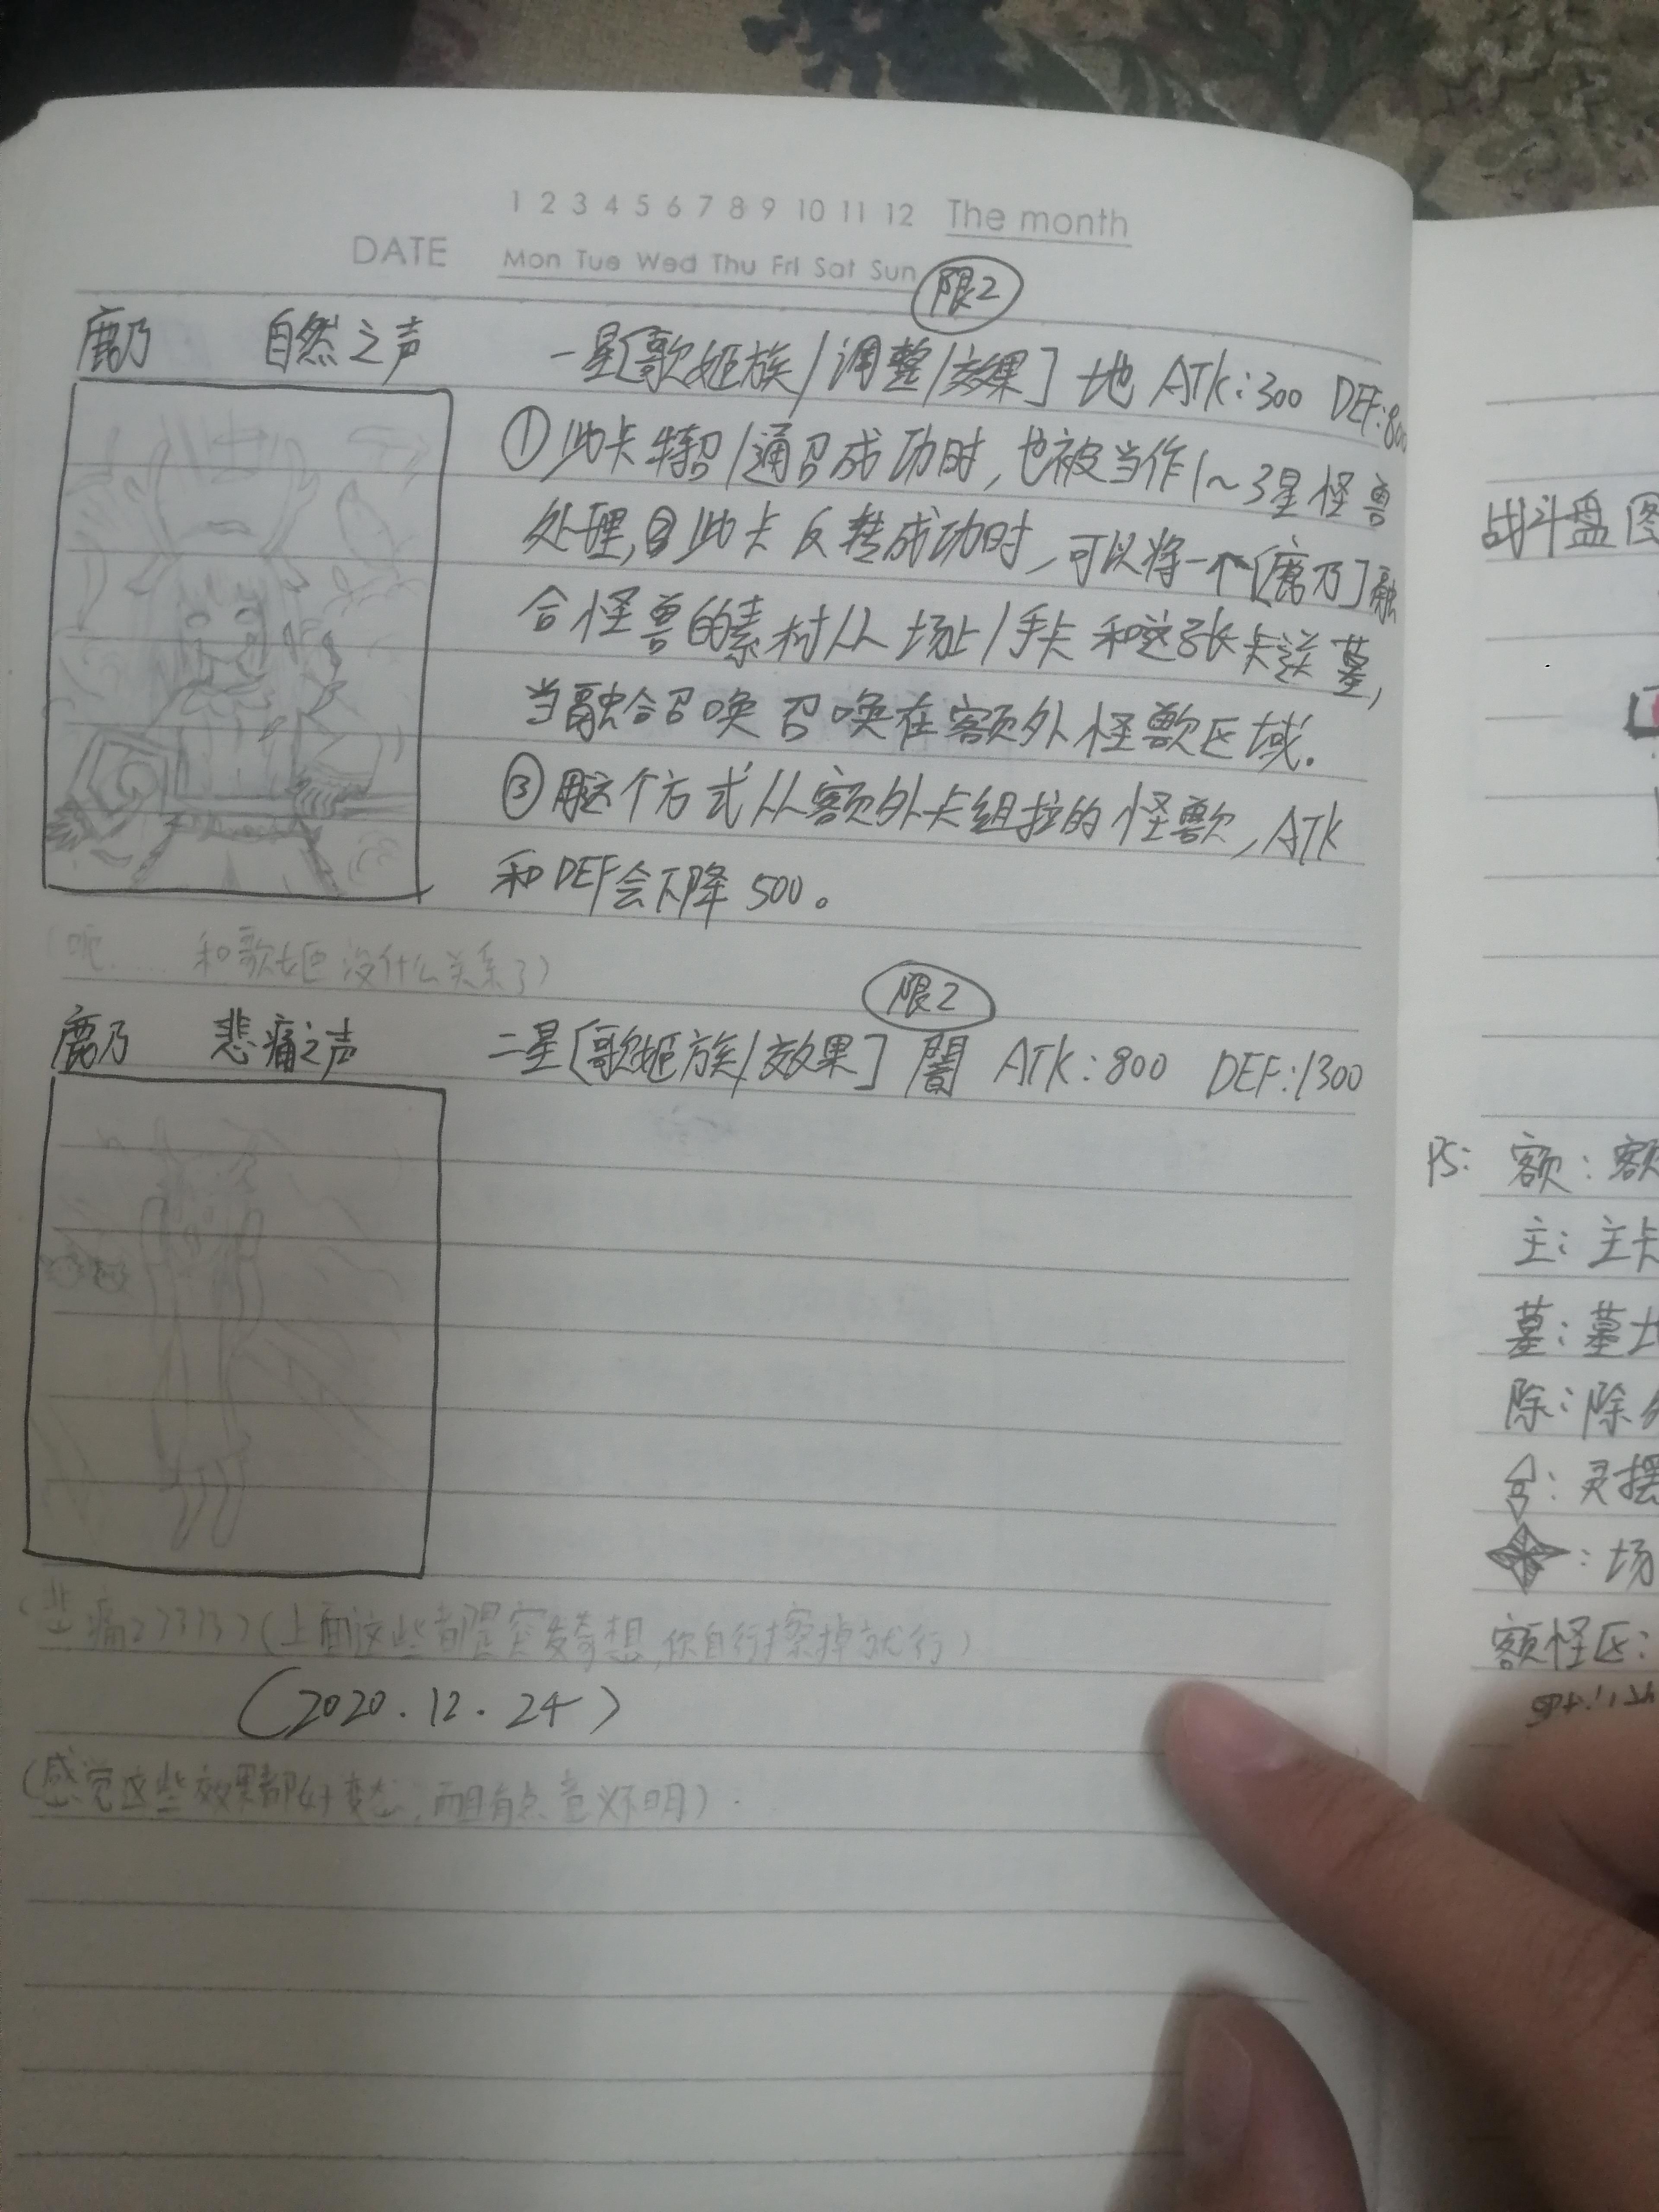 1 2 3 4 5 6 7 8 9 10 11 12 The month
DATE Mon Tue Wed Thu Fri Sat Sun
限2
鹿乃 自然之声 一星[歌姬族/调整/效果] 地 ATK:300 DEF:800
①此卡特召/通召成功时,也被当作1~3星怪兽
处理,②此卡反转成功时,可以将一个[鹿乃]融
合怪兽的素材从场上/手卡和这张卡送墓,
当融合召唤召唤在额外怪兽区域.
③用这个方式从额外卡组拉的怪兽,ATK
和DEF会下降500。
(呃…… 和歌姬没什么关系了)
限2
鹿乃 悲痛之声 二星[歌姬族/效果] 闇 ATK:800 DEF:1300
(上面这些都是突发奇想,你自行擦掉就行)
(2020.12.24)
(感觉这些效果都好变态,而且有点意义不明).
战斗盘图
PS: 额:额
主:主卡
墓:墓地
除:除外
:灵摆
:场
额怪区: